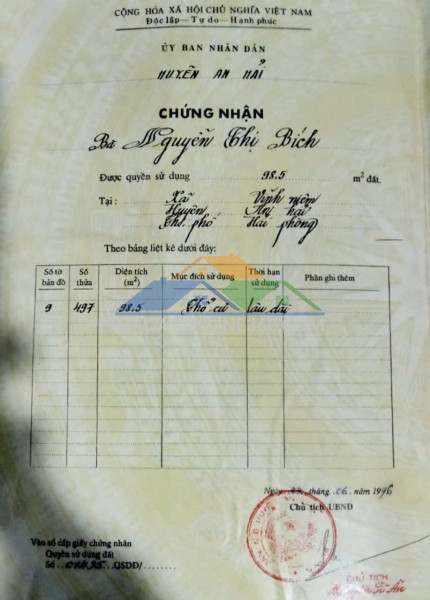 CỘNG HÒA XÃ HỘI CHỦ NGHĨA VIỆT NAM
Độc lập — Tự do — Hạnh phúc
ỦY BAN NHÂN DÂN
HUYỆN AN HẢI
CHỨNG NHẬN
Bà Nguyễn Thị Bích
Được quyền sử dụng 98.5 m² đất.
Tại : Xã Vĩnh niệm
Huyện An hải
Th. phố Hải phòng
Theo bảng liệt kê dưới đây:
Số tờ bản đồ Số thửa Diện tích (m²) Mục đích sử dụng Thời hạn sử dụng Phần ghi thêm
9 497 98.5 Thổ cư lâu dài
Ngày tháng 06 năm 1996
Chủ tịch UBND
Vào sổ cấp giấy chứng nhận
Quyền sử dụng đất
Số QSDĐ/
CHỦ TỊCH